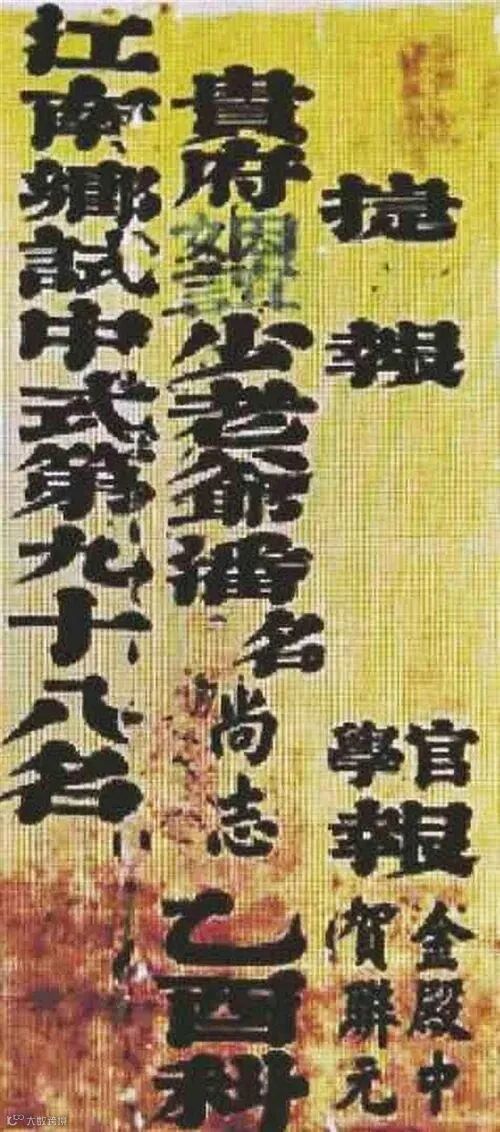 捷報
官學報
金殿中
賀聯元
貴府姻誼少老爺潘名尚志乙酉科
江南鄉試中式第九十八名
大数跨境